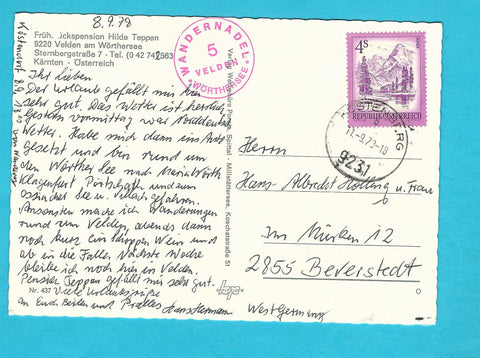 8.9.78
Früh.ückspension Hilde Teppan
9220 Velden am Wörthersee
Sternbergstraße 7 - Tel. (0 42 74) 2563
Kärnten - Österreich
WANDERNADEL
5
VELDEN
WÖRTHERSEE
4S
REPUBLIK ÖSTERREICH
BERG
11.-9.78-18
9231
Ihr lieben
Der Urlaub gefällt mir hier
sehr gut. Das Wetter ist herrlich,
Gestern vormittag war Norddeutsches
Wetter. Habe mich dann ins Auto
gesetzt und bin rund um
den Wörther See nach Maria Wörth
Klagenfurt Pörtschach und zum
Ossiacher See u. Villach gefahren.
Ansonsten mache ich Wanderungen
rund um Velden, abends dann
noch kurz ein Wein und
ab in die Falle. Nächste Woche
bleibe ich noch hier in Velden.
Pension Teppan gefällt mir sehr gut.
Viele Urlaubsgrüße
an Euch Beiden und
Nr. 437
Herrn
Hans-Albrecht u. Frau
Im 12
2855 Beverstedt
West Germany